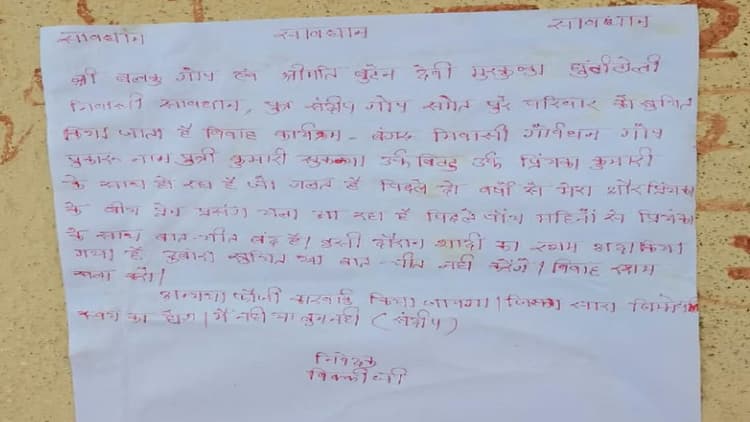 सावधान सावधान सावधान
श्री बलकु गोप एवं श्रीमति बुटेन देवी मुरकुण्डा
निवासी सावधान, पुत्र संदीप गोप समेत पुरे परिवार को सुचित
किया जाता है विवाह कार्यक्रम - बंगरू निवासी गोप
नाम पुत्री कुमारी उर्फ उर्फ प्रियंका कुमारी
के साथ हो रहा है जो गलत है पिछले दो वर्षों से मेरा और प्रियंका
के बीच प्रेम प्रसंग चला आ रहा है पिछले पाँच महिनों से प्रियंका
के साथ बात-चीत बंद है। इसी दौरान शादी का रसम अदा किया
गया है दुबारा बात-चीत नही करेंगे। विवाह रसम
करो।
अन्यथा फौजी कारवाई किया जायगा। जिसका सारा
स्वयं का होगा। मैं नही या तुम नही (संदीप)
निवेदक
विक्की जी